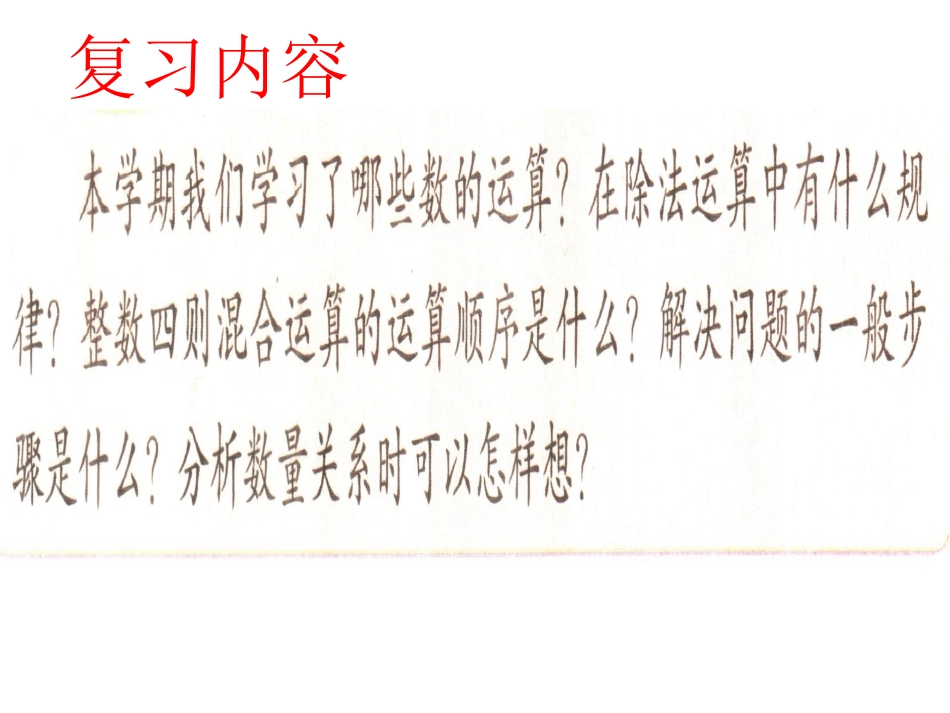 复习内容
本学期我们学习了哪些数的运算？在除法运算中有什么规
律？整数四则混合运算的运算顺序是什么？解决问题的一般步
骤是什么？分析数量关系时可以怎样想？